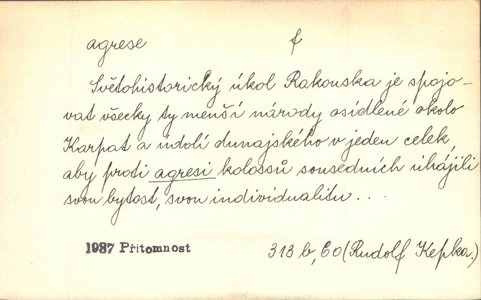 agrese f
Světohistorický úkol Rakouska je spojo-
vat všecky ty menší národy osídlené okolo
Karpat a údolí dunajského v jeden celek,
aby proti agresi kolossů sousedních uhájili
svou bytost, svou individualitu...
1937 Přítomnost 313 b, Co (Rudolf Kepka.)